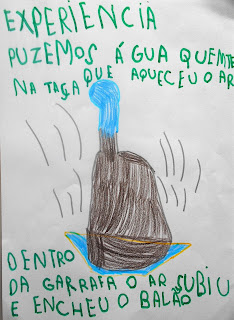 EXPERIENCIA
PUZEMOS ÁGUA QUENTE
NA TAÇA QUE AQUECEU O AR
DENTRO
DA GARRAFA O AR SUBIU
E ENCHEU O BALÃO